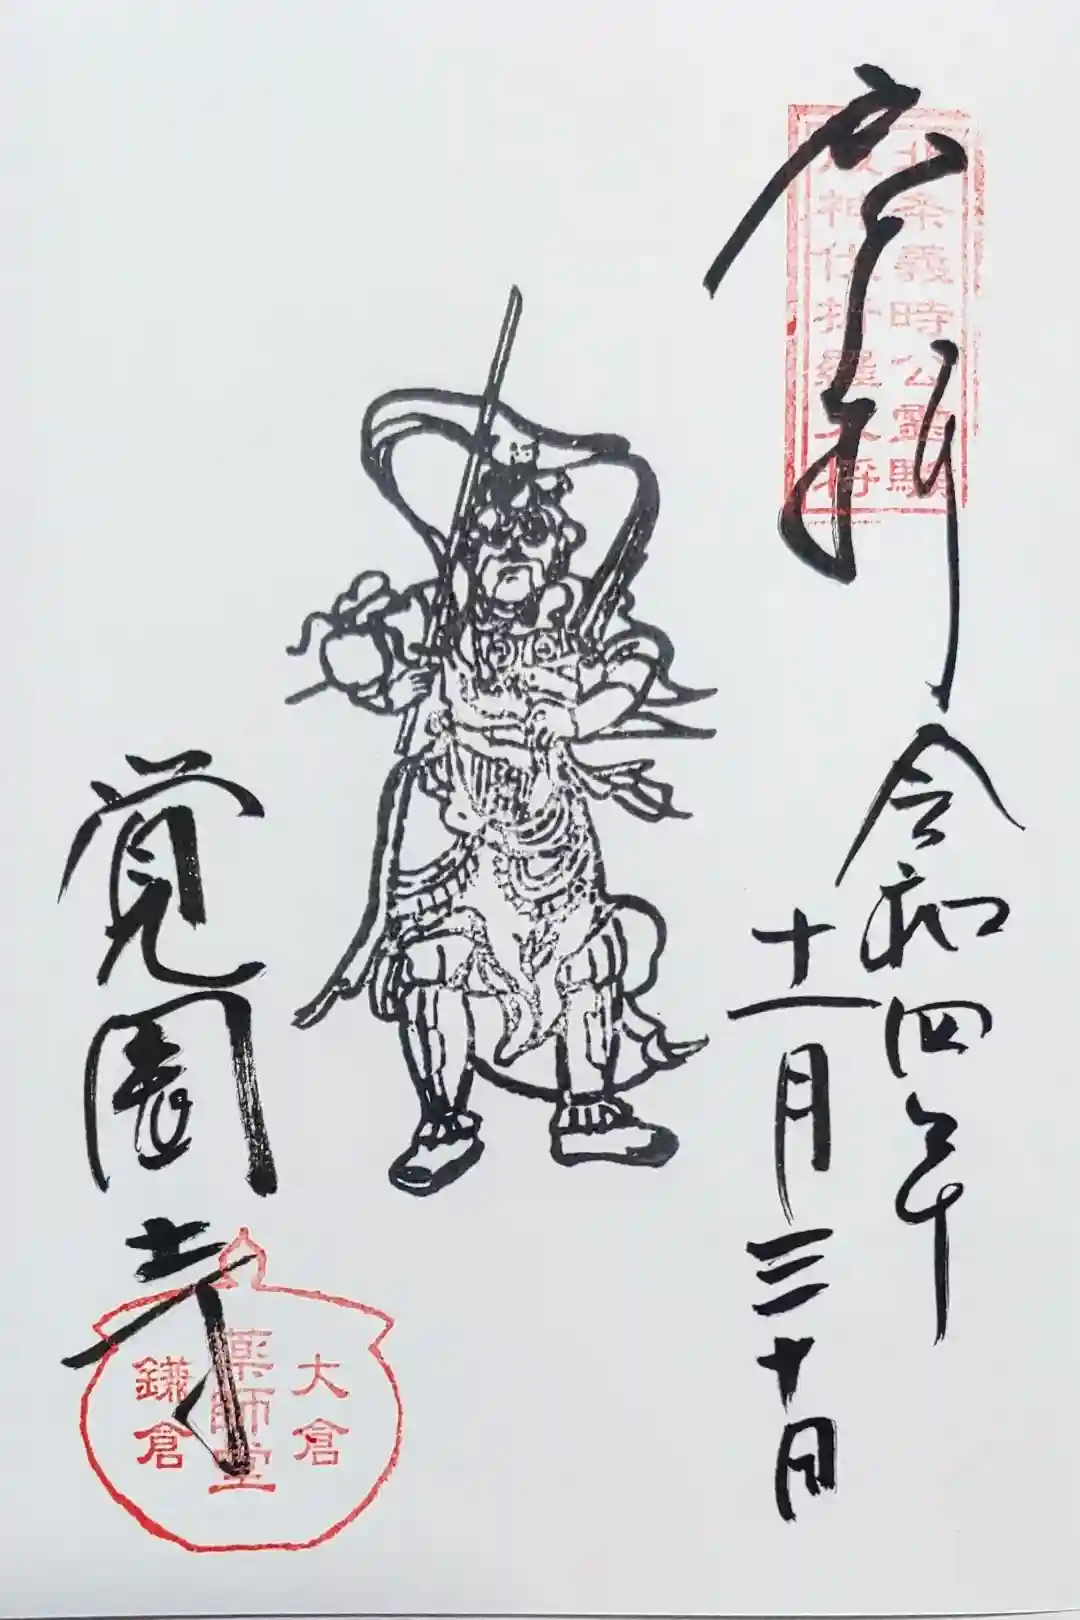 北条義時公霊験
戌神伐折羅大将
令和四年
十一月三十日
覚園寺
大倉
薬師堂
鎌倉